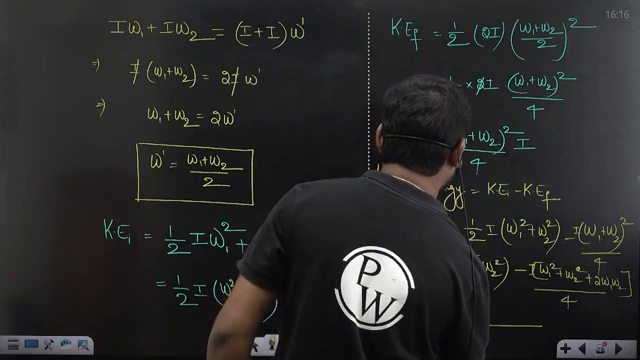 16:16
Iω₁ + Iω₂ = (I + I) ω'
⇒ I (ω₁+ω₂) = 2I ω'
⇒ ω₁ + ω₂ = 2ω'
ω' = (ω₁+ω₂)/2
KEᵢ = 1/2 Iω₁² +
= 1/2 I (ω²
KE_f = 1/2 (2I) ((ω₁+ω₂)/2)²
× 2I (ω₁+ω₂)²/4
+ω₂)²/4 I
gy = KEᵢ - KE_f
1/2 I (ω₁² + ω₂²) - I(ω₁+ω₂)²/4
ω₂²) - I[ω₁² + ω₂² + 2ω₁ω₂]/4
P
W